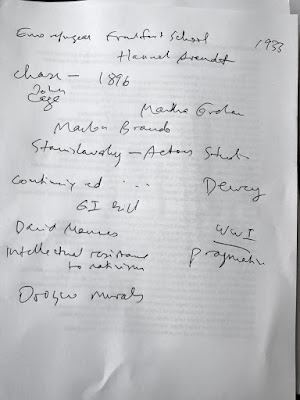 Euro refugees Frankfurt School 1933
Hannah Arendt
Chase – 1896
John
Cage
Martha Graham
Marlon Brando
Stanislavsky – Actors Studio
Continuing ed ... Dewey
GI Bill
David Mannes WWI
intellectual resistance pragmatism
to nativism
Orozco murals